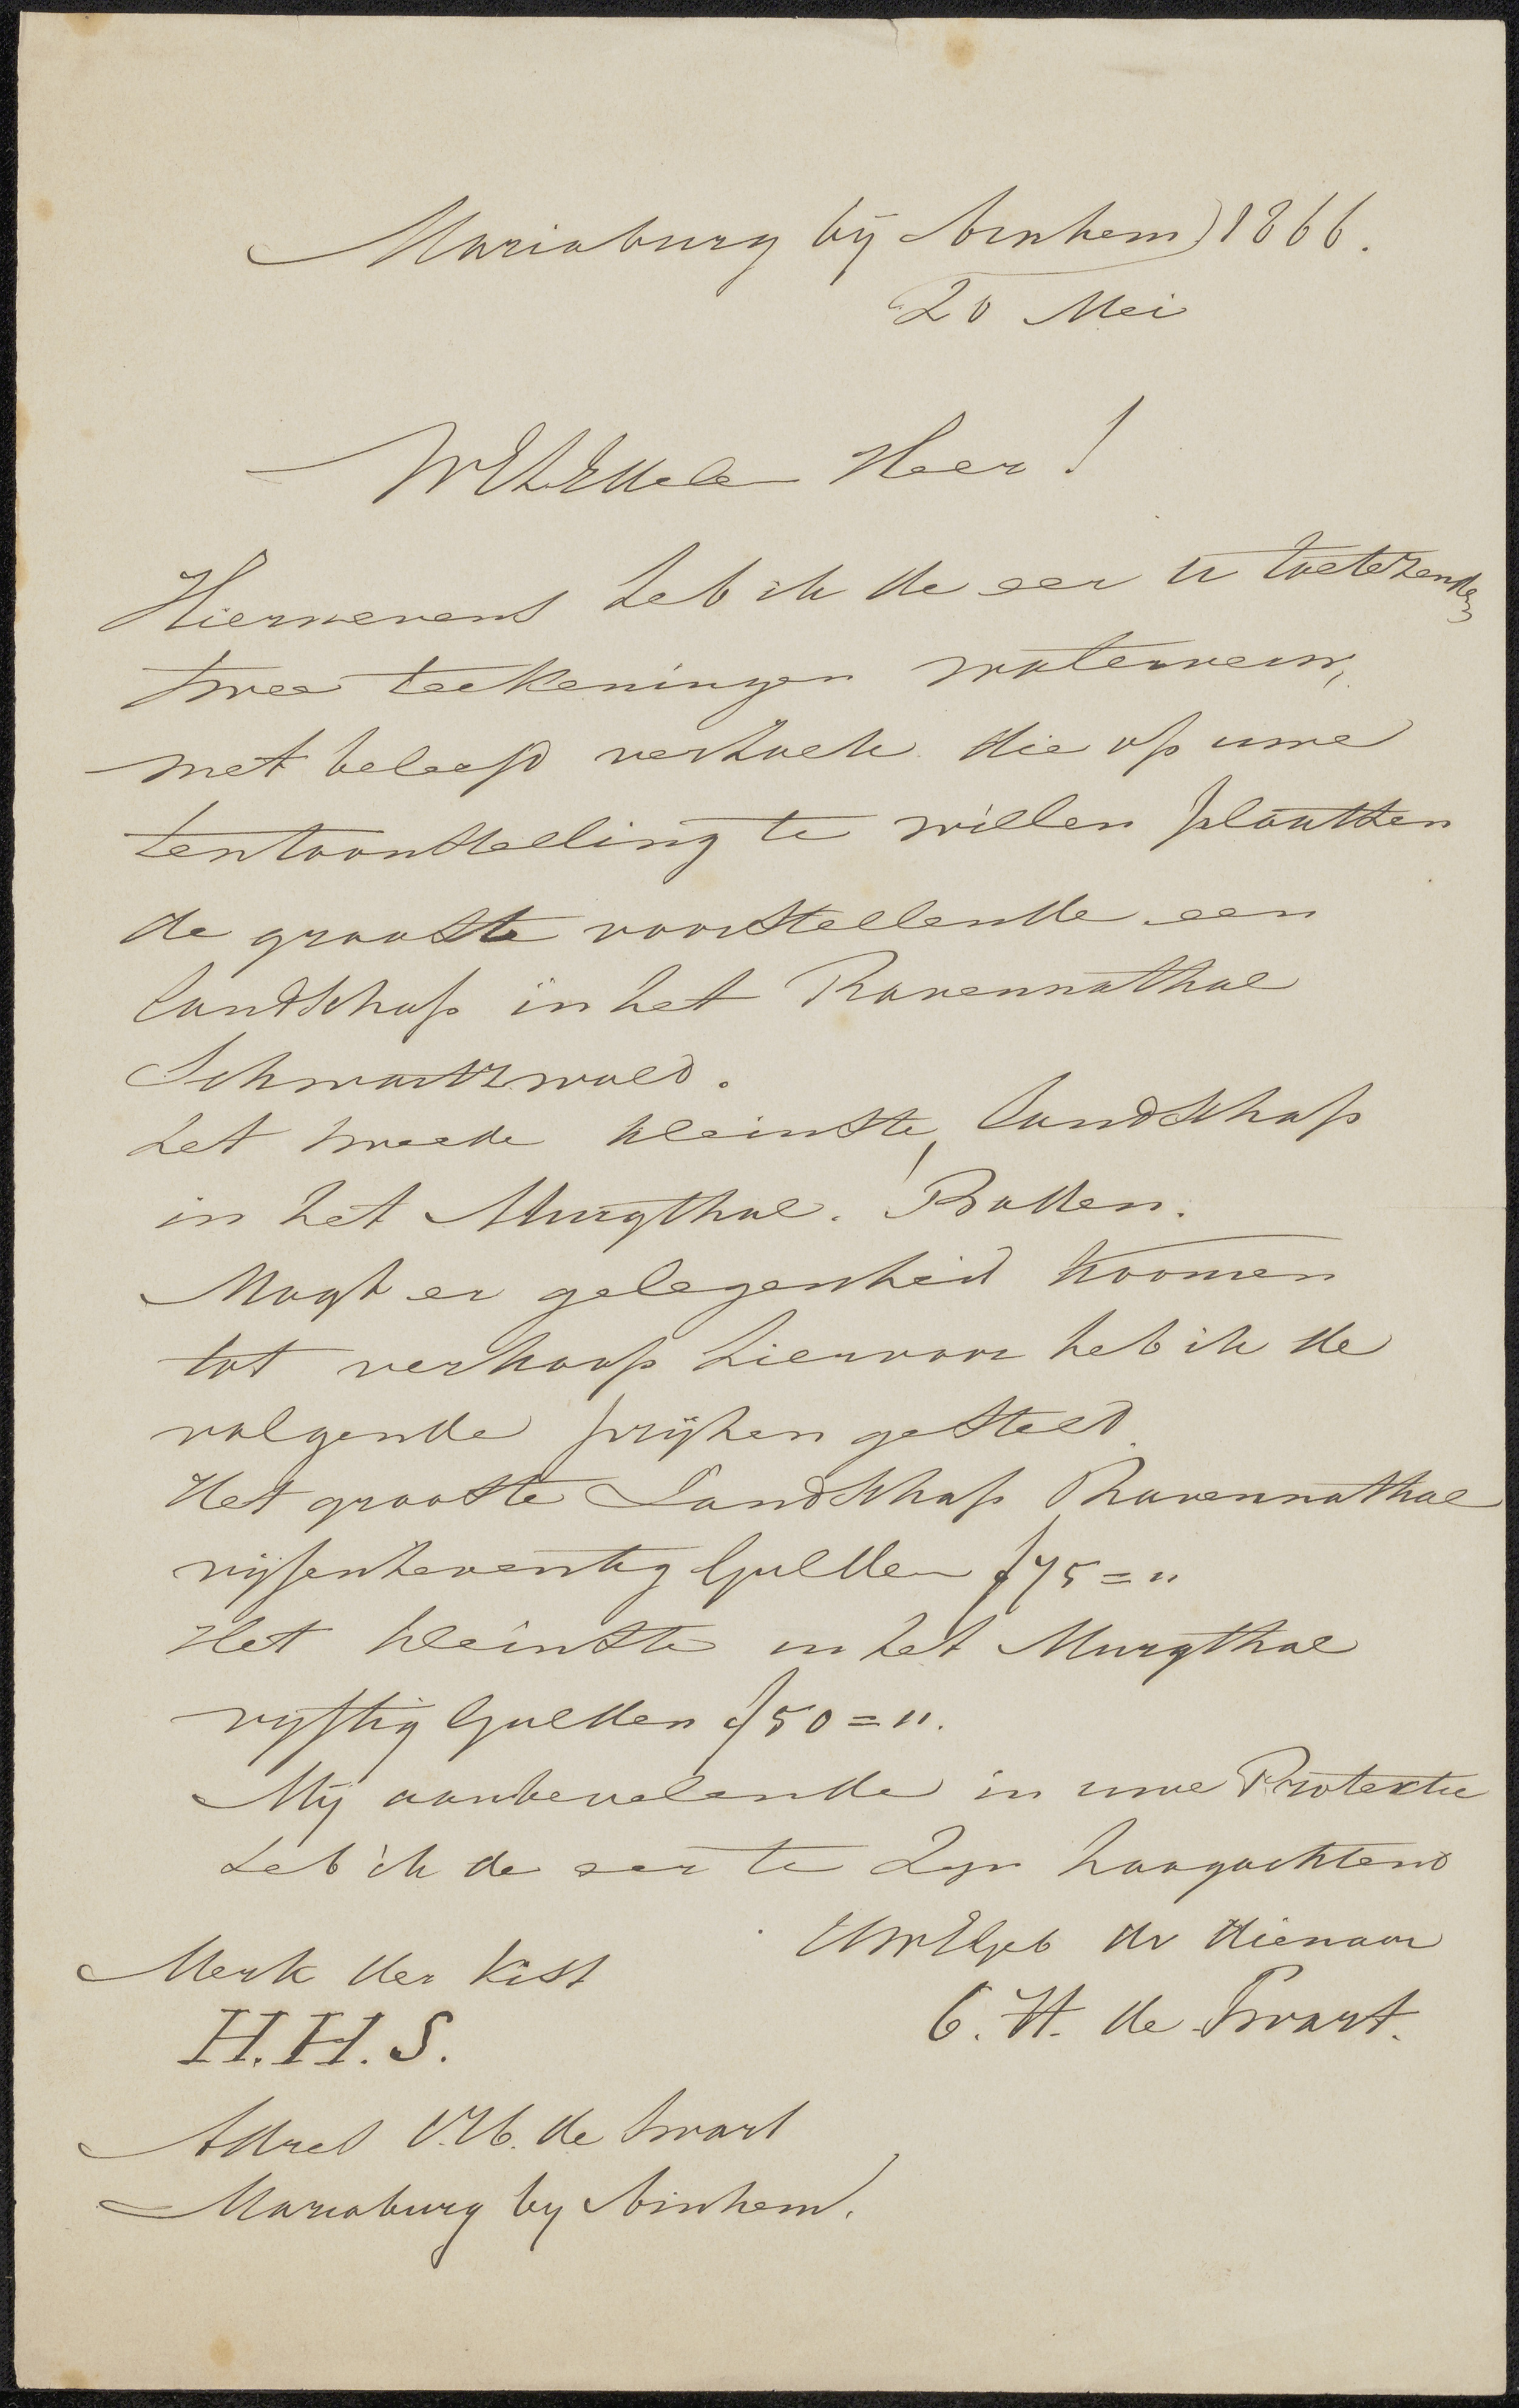 Mariaburg bij Arnhem 1866.
20 Mei
WElEdele Heer!
Hiernevens heb ik de eer U toetezenden
twee teekeningen waterverw,
met beleefd verzoek die op uwe
tentoonstelling te willen plaatsen
de grootste voorstellende een
landschap in het Ravennathal
Schwartzwald.
het tweede kleinste, landschap
in het Murgthal. Baden.
Mogt er gelegenheid koomen
tot verkoop hiervoor heb ik de
volgende prijzen gesteld.
Het grootste Landschap Ravennathal
vijfenzeventig Gulden f75="
Het kleinste in het Murgthal
vyftig Gulden f50=".
Mij aanbevelende in uwe Protektie
heb ik de eer te Zyn hoogachtend
UWElgeb dv dienaar
C. H. de Swart.
Merk der Kist
H.H.S.
Adres C.H. de Swart
Mariaburg by Arnhem.